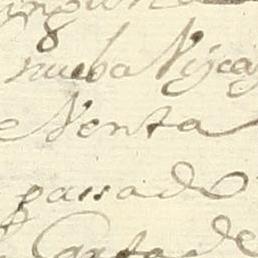 nueba Vizcay
Venta
passado
Carta de